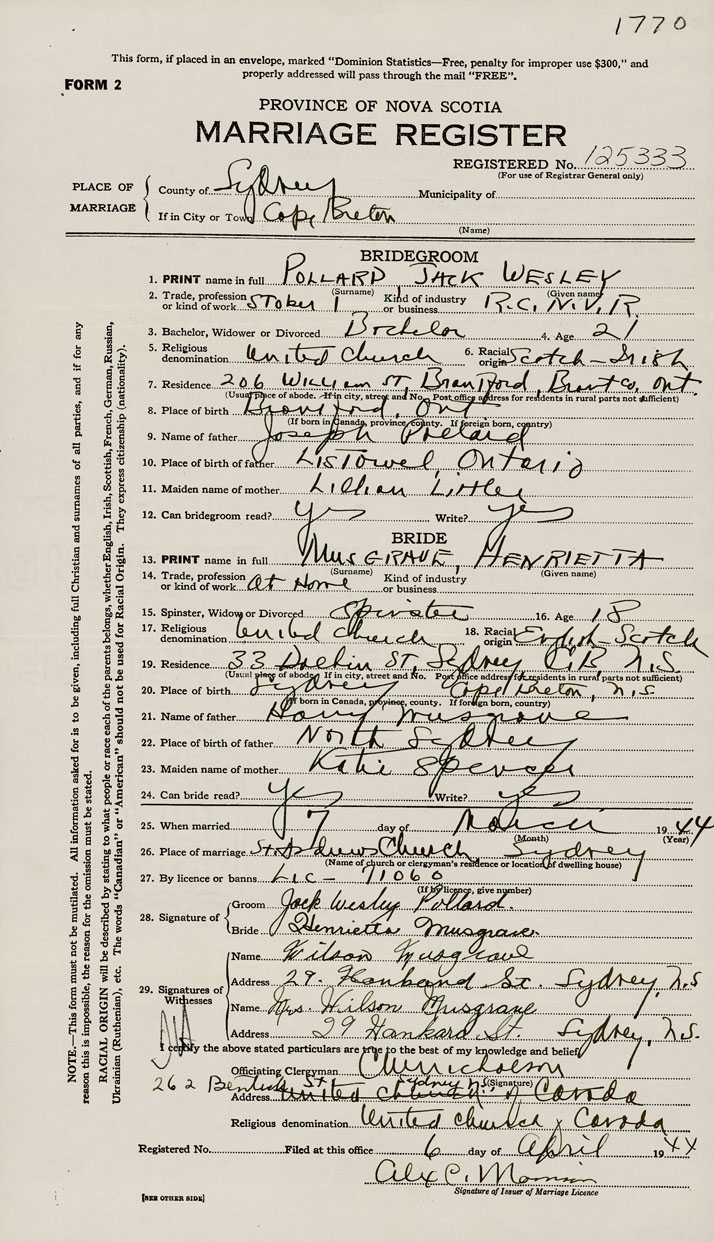 1770
This form, if placed in an envelope, marked "Dominion Statistics—Free, penalty for improper use $300," and
properly addressed will pass through the mail "FREE".
FORM 2
PROVINCE OF NOVA SCOTIA
MARRIAGE REGISTER
REGISTERED No. 125333
(For use of Registrar General only)
PLACE OF MARRIAGE
County of Sydney Municipality of
If in City or Town Cape Breton
(Name)
BRIDEGROOM
1. PRINT name in full POLLARD JACK WESLEY
(Surname) (Given name)
2. Trade, profession or kind of work STOKER 1 Kind of industry or business R.C.N.V.R.
3. Bachelor, Widower or Divorced Bachelor 4. Age 21
5. Religious denomination United Church 6. Racial origin Scotch-Irish
7. Residence 206 William St, Brantford, Brant Co. Ont.
(Usual place of abode. If in city, street and No. Post office address for residents in rural parts not sufficient)
8. Place of birth Brantford, Ont
(If born in Canada, province, county. If foreign born, country)
9. Name of father Joseph Pollard
10. Place of birth of father Listowel, Ontario
11. Maiden name of mother Lillian Littler
12. Can bridegroom read? yes Write? yes
BRIDE
13. PRINT name in full MUSGRAVE, HENRIETTA
(Surname) (Given name)
14. Trade, profession or kind of work at Home Kind of industry or business
15. Spinster, Widow or Divorced Spinster 16. Age 18
17. Religious denomination United Church 18. Racial origin English-Scotch
19. Residence 33 St, Sydney C.B. N.S.
(Usual place of abode. If in city, street and No. Post office address for residents in rural parts not sufficient)
20. Place of birth Sydney Cape Breton, N.S.
(If born in Canada, province, county. If foreign born, country)
21. Name of father Harry Musgrave
22. Place of birth of father North Sydney
23. Maiden name of mother Katie Spencer
24. Can bride read? yes Write? yes
25. When married 7 day of March 1944
(Month) (Year)
26. Place of marriage St. Andrews Church Sydney
(Name of church or clergyman's residence or location of dwelling house)
27. By licence or banns Lic - 71060
(If by licence, give number)
28. Signature of
Groom Jack Wesley Pollard.
Bride Henrietta Musgrave.
29. Signatures of Witnesses
Name Wilson Musgrave
Address 29. Hankard St. Sydney, N.S
Name Mrs Wilson Musgrave
Address 29 Hankard St. Sydney, N.S.
I certify the above stated particulars are true to the best of my knowledge and belief
Officiating Clergyman Nicholson
(Signature)
262 St Sydney N.S.
Address United Church of Canada
Religious denomination United Church of Canada
Registered No. Filed at this office 6 day of April 1944
Alex C.
Signature of Issuer of Marriage Licence
[SEE OTHER SIDE]
NOTE.—This form must not be mutilated. All information asked for is to be given, including full Christian and surnames of all parties, and if for any
reason this is impossible, the reason for the omission must be stated.
RACIAL ORIGIN will be described by stating to what people or race each of the parents belongs, whether English, Irish, Scottish, French, German, Russian,
Ukrainian (Ruthenian), etc. The words "Canadian" or "American" should not be used for Racial Origin. They express citizenship (nationality).